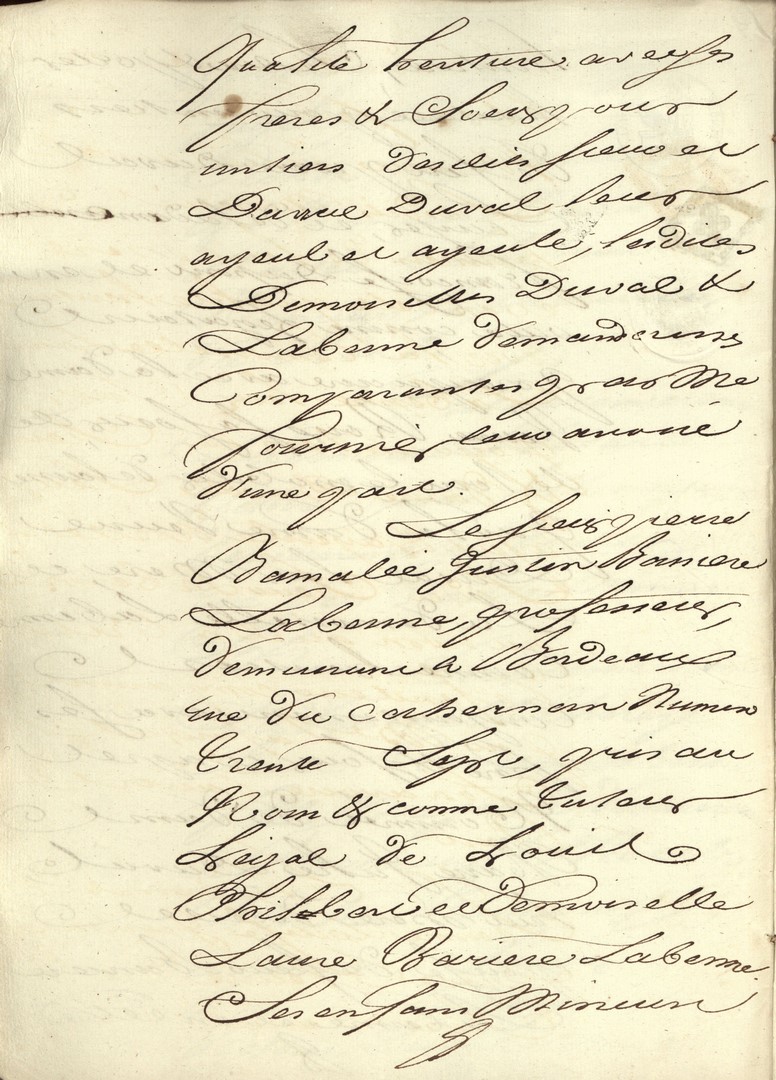 Qualité heritiere avec ses
freres & Soeur pour
un tiers desdits sieur et
Dame Duval leur
ayeul et ayeule, lesdites
Demoiselles Duval &
Labenne demanderesses
Comparantes par Me
fournier leur avoué
d'une part.
Le sieur pierre
Justin Bariere
Labenne, professeur,
demeurant a Bordeaux
rue du Cahernan Numero
trente Sept, pris au
Nom & comme tuteur
Légal de Louis
Philibert et Demoiselle
Laure Bariere Labenne
Ses enfans Mineurs